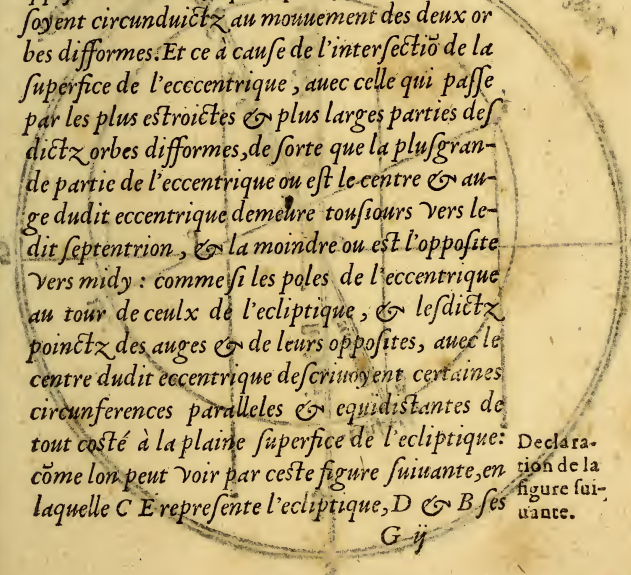 ſoyent circunduictz au mouuement des deux or
bes difformes: Et ce à cauſe de l'interſectiõ de la
ſuperfice de l'ecccentrique, auec celle qui paſſe
par les plus eſtroictes & plus larges parties deſ
dictz orbes difformes, de ſorte que la pluſgran-
de partie de l'eccentrique ou eſt le centre & au-
ge dudit eccentrique demeure touſiours vers le-
dit ſeptentrion, & la moindre ou eſt l'oppoſite
vers midy : comme ſi les poles de l'eccentrique
au tour de ceulx de l'ecliptique, & leſdictz
poinctz des auges & de leurs oppoſites, auec le
centre dudit eccentrique deſcriuoyent certaines
circunferences paralleles & equidiſtantes de
tout coſté à la plaine ſuperfice de l'ecliptique:
cõme lon peut voir par ceſte figure ſuiuante, en
laquelle C E repreſente l'ecliptique, D & B ſes
Declara-
tion de la
figure ſui-
uante.
G ij